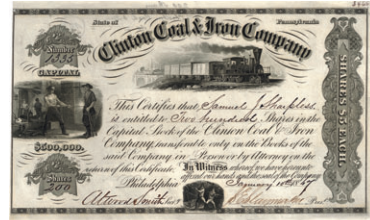 State of Pennsylvania
Clinton Coal & Iron Company
Number
1355
CAPITAL
$600,000.
Shares
200
SHARES $5 EACH
This Certifies that Samuel J Sharpless
is entitled to Two hundred Shares in the
Capital Stock of the Clinton Coal & Iron
Company, transferable only on the Books of the
said Company in Person or by Attorney on the
return of this Certificate. In Witness whereof we have
affixed our hands and the seal of the Company
Philadelphia January 10th 1867
Atwood Smith Sec't
Pres't